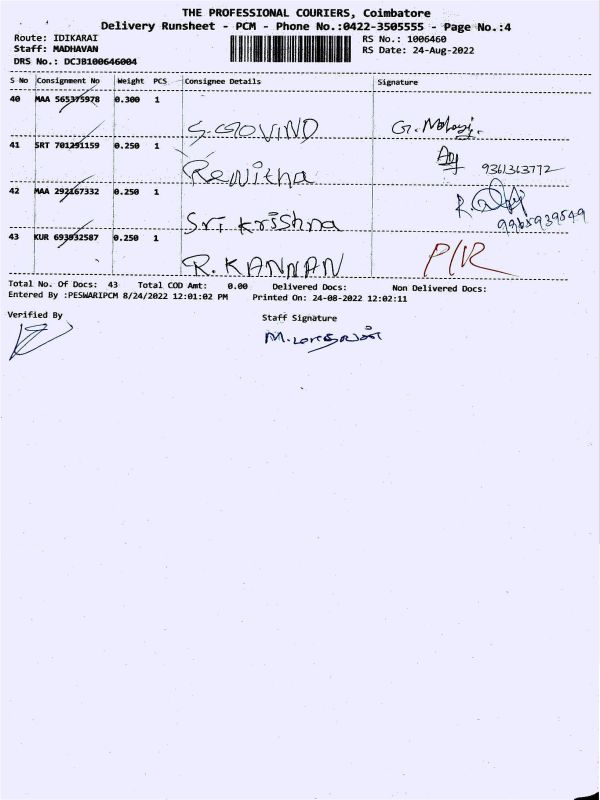 THE PROFESSIONAL COURIERS, Coimbatore
Delivery Runsheet - PCM - Phone No.:0422-3505555 - Page No.:4
Route: IDIKARAI RS No.: 1006460
Staff: MADHAVAN RS Date: 24-Aug-2022
DRS No.: DCJB100646004
S No Consignment No Weight PCS Consignee Details Signature
40 MAA 565375978 0.300 1 S.GOVIND G.
41 SRT 701291159 0.250 1 Renitha 9361363772
42 MAA 292167332 0.250 1 Sri Krishna
43 KUR 693932587 0.250 1 R.KANNAN P/R
Total No. Of Docs: 43 Total COD Amt: 0.00 Delivered Docs: Non Delivered Docs:
Entered By :PESWARIPCM 8/24/2022 12:01:02 PM Printed On: 24-08-2022 12:02:11
Verified By Staff Signature